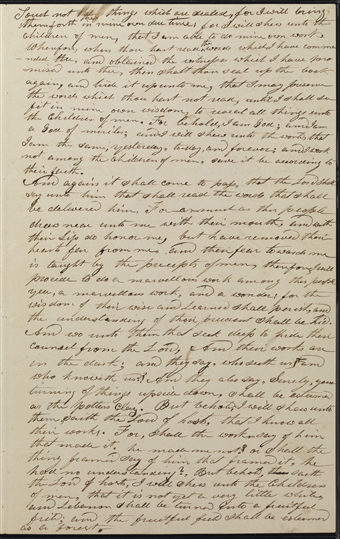 Touch not the things which are sealed, for I will bring
them forth in mine own due time; for I will shew unto the
children of men, that I am able to do mine own work.
Wherefore, when thou hast read the words which I have comma-
nded thee, and obtained the witnesses which I have pro-
mised unto thee, then shalt thou seal up the book
again, and hide it up unto me, that I may preserve
the words which thou hast not read, until I shall see
fit in mine own wisdom, to reveal all things unto
the children of men. For behold, I am God; and I am
a God of miracles; and I will shew unto the world that
I am the same, yesterday, today, and forever; and I work
not among the children of men, save it be according to
their faith.
And again it shall come to pass, that the Lord shall
say unto him that shall read the words that shall
be delivered him, Forasmuch as this people
draw near unto me with their mouth, and with
their lips do honor me, but have removed their
hearts far from me, and their fear towards me
is taught by the precepts of men, therefore, I will
proceed to do a marvellous work among this people
yea, a marvellous work, and a wonder; for the
wisdom of their wise and learned shall perish, and
the understanding of their prudent shall be hid.
And wo unto them that seek deep to hide their
counsel from the Lord. And their works are
in the dark; and they say, who seeth us, and
who knoweth us? And they also say, Surely, your
turning of things upside down, shall be esteemed
as the potters Clay. But behold, I will shew unto
them, saith the Lord of hosts, that I know all
their works. For, shall the work say of him
that made it, he made me not? or shall the
thing framed say of him that framed it, he
had no understanding? But behold, saith
the Lord of hosts, I will shew unto the children
of men, that it is not yet a very little while,
and Lebanon shall be turned into a fruitful
field; and the fruitful field shall be esteemed
as a forest.